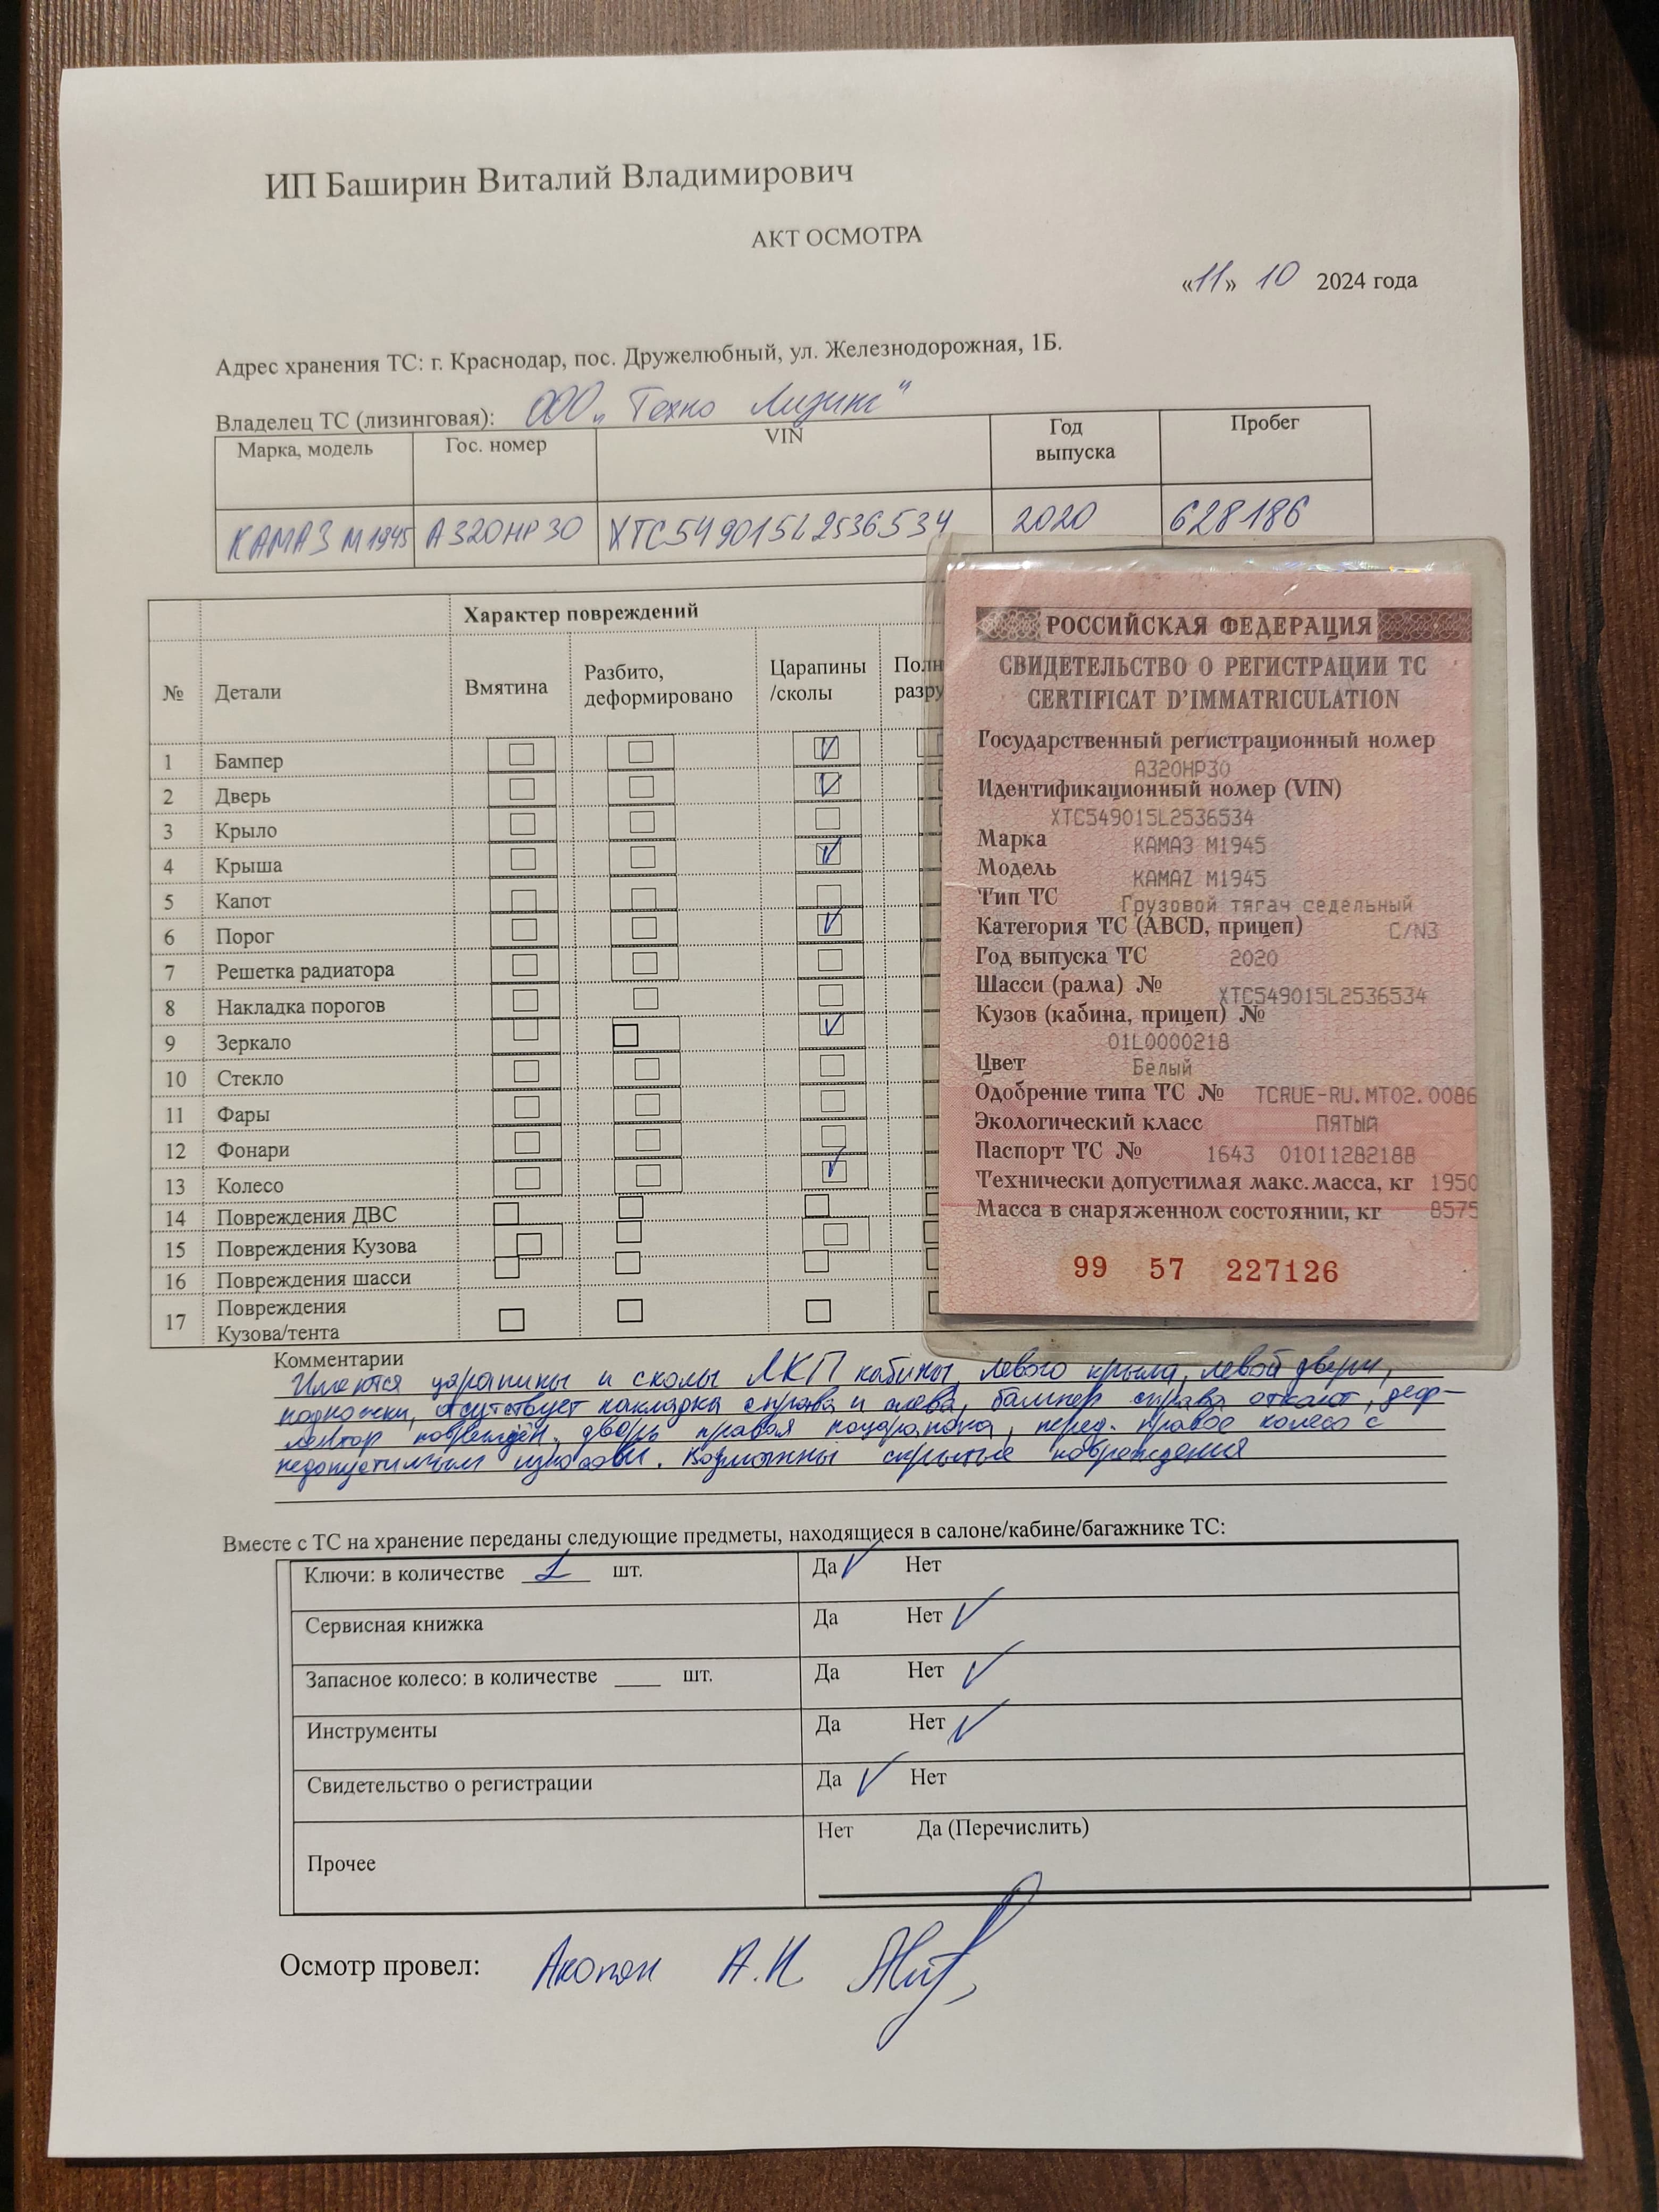 ИП Баширин Виталий Владимирович
АКТ ОСМОТРА
«11» 10 2024 года
Адрес хранения ТС: г. Краснодар, пос. Дружелюбный, ул. Железнодорожная, 1Б.
Владелец ТС (лизинговая): ООО „Техно Лизинг"
Марка, модель Гос. номер VIN Год выпуска Пробег
КАМАЗ М1945 А320НР30 XTC549015L2536534 2020 628186
Характер повреждений
№ Детали Вмятина Разбито, деформировано Царапины /сколы
1 Бампер ☐ ☐ ☑
2 Дверь ☐ ☐ ☑
3 Крыло ☐ ☐ ☐
4 Крыша ☐ ☐ ☑
5 Капот ☐ ☐ ☐
6 Порог ☐ ☐ ☑
7 Решетка радиатора ☐ ☐ ☐
8 Накладка порогов ☐ ☐ ☐
9 Зеркало ☐ ☐ ☑
10 Стекло ☐ ☐ ☐
11 Фары ☐ ☐ ☐
12 Фонари ☐ ☐ ☐
13 Колесо ☐ ☐ ☑
14 Повреждения ДВС ☐ ☐ ☐
15 Повреждения Кузова ☐ ☐ ☐
16 Повреждения шасси ☐ ☐ ☐
17 Повреждения Кузова/тента ☐ ☐ ☐
РОССИЙСКАЯ ФЕДЕРАЦИЯ
СВИДЕТЕЛЬСТВО О РЕГИСТРАЦИИ ТС
CERTIFICAT D'IMMATRICULATION
Государственный регистрационный номер
А320НР30
Идентификационный номер (VIN)
XTC549015L2536534
Марка КАМАЗ М1945
Модель KAMAZ M1945
Тип ТС Грузовой тягач седельный
Категория ТС (ABCD, прицеп) C/N3
Год выпуска ТС 2020
Шасси (рама) № XTC549015L2536534
Кузов (кабина, прицеп) №
01L0000218
Цвет Белый
Одобрение типа ТС № TCRUE-RU.MT02.0086
Экологический класс ПЯТЫЙ
Паспорт ТС № 1643 01011282188
Технически допустимая макс.масса, кг 1950
Масса в снаряженном состоянии, кг 8575
99 57 227126
Комментарии
Имеются царапины и сколы ЛКП кабины, левого крыла, левой двери,
подножки, отсутствует накладка справа и слева, бампер справа откол, деф-
лектор поврежден. дверь правая поцарапана, перед. правое колесо с
недопустимым износом. Возможны скрытые повреждения
Вместе с ТС на хранение переданы следующие предметы, находящиеся в салоне/кабине/багажнике ТС:
Ключи: в количестве 1 шт. Да ✓ Нет
Сервисная книжка Да Нет ✓
Запасное колесо: в количестве ____ шт. Да Нет ✓
Инструменты Да Нет ✓
Свидетельство о регистрации Да ✓ Нет
Прочее Нет Да (Перечислить)
Осмотр провел: Акопян А.К